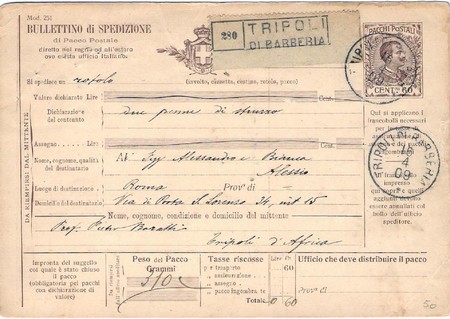 Mod. 251
BULLETTINO DI SPEDIZIONE
di Pacco Postale
diretto nel regno od all'estero
280
TRIPOLI
DI BARBERIA
PACCHI POSTALI
CENT. 60
Si spedisce un rotolo
(Involto, cassetta, cestino, rotolo, paco)
Valore dichiarato Lire
Dichiarazione del contenuto due penne di struzzo
Assegno: Lire
Nome, cognome, qualità del destinatario Ai Sigg Alessandro e Bianca
Alessio
Luogo di destinazione: Roma Prov<sup>a</sup> di
Domicilio del destinatario Via di Porta S. Lorenzo 34, int 15
Nome, cognome, condizione e domicilio del mittente
Tripoli d'Africa
DA RIEMPIRSI DAL MITTENTE
TRIPOLI DI BARBERIA
4
09
Impronta del suggello
col quale è stato chiuso
il pacco
(obbligatoria pei pacchi
con dichiarazione di
valore)
Peso del Pacco
Grammi
Tasse riscosse
per trasporto 60
» assicurazione
» assegno
» pacco ingombrante
Totale 0 60
Ufficio che deve distribuire il pacco
Prov<sup>a</sup> di
50